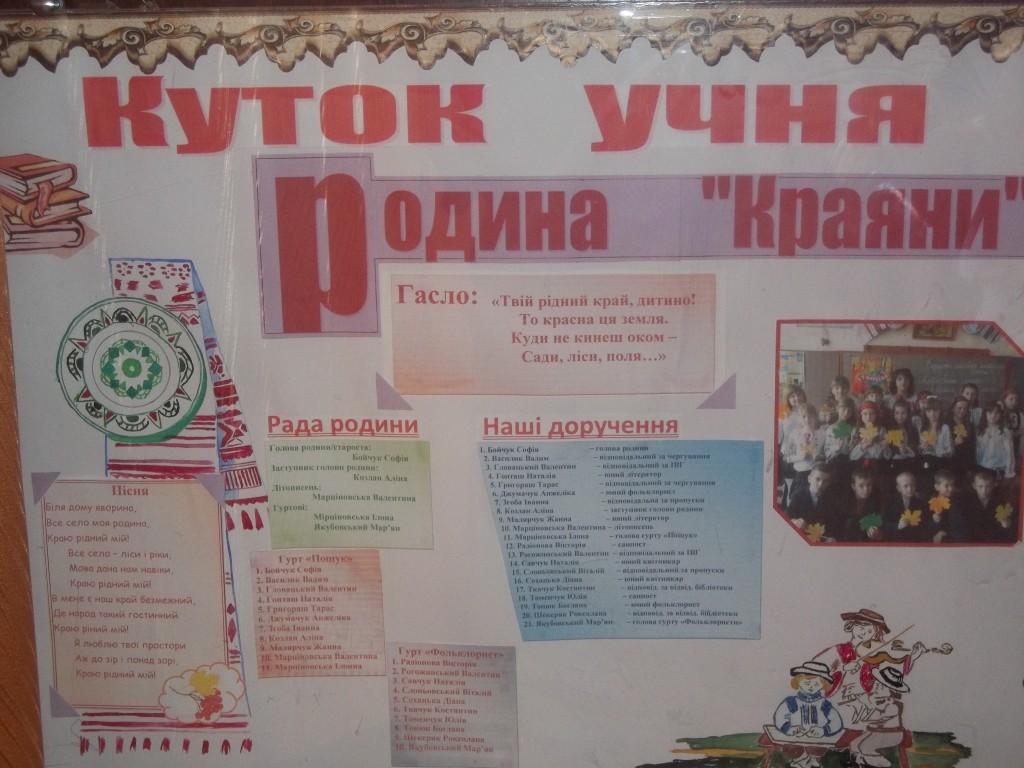 Куток учня
Родина "Краяни"
Гасло: «Твій рідний край, дитино!
То красна ця земля.
Куди не кинеш оком –
Сади, ліси, поля…»
Рада родини
Голова родини/староста:
Бойчук Софія
Заступник голови родини:
Козлан Аліна
Літописець:
Марціновська Валентина
Гуртові:
Мірціновська Ілона
Якубовський Мар'ян
Наші доручення
1. Бойчук Софія – голова родини
2. Василик Вадим – відповідальний за чергування
3. Гловацький Валентин – відповідальний за ІВГ
4. Гонташ Наталія – юний літератор
5. Григораш Тарас – відповідальний за чергування
6. Джумачук Анжеліка – юний фольклорист
7. Згоба Іванна – відповідальна за пропуски
8. Козлан Аліна – заступник голови родини
9. Малярчук Жанна – юний літератор
10. Марціновська Валентина – літописець
11. Марціновська Ілона – голова гурту «Пошук»
12. Радіонова Вікторія – санпост
13. Рогожинський Валентин – відповідальний за ІВГ
14. Савчук Наталія – юний квітникар
15. Слоньовський Віталій – відповідальний за пропуски
16. Соханька Діана – юний квітникар
17. Ткачук Костянтин – відповід. за відвід. бібліотеки
18. Томенчук Юлія – санпост
19. Тонюк Богдана – юний фольклорист
20. Ціскерик Роксолана – відповід. за відвід. бібліотеки
21. Якубовський Мар'ян – голова гурту «Фольклористи»
Пісня
Біля дому яворина,
Все село моя родина,
Краю рідний мій!
Все село – ліси і ріки,
Мова дана нам навіки,
Краю рідний мій!
В мене є наш край безмежний,
Де народ такий гостинний
Краю рідний мій!
Я люблю твої простори
Аж до зір і понад зорі,
Краю рідний мій!
Гурт «Пошук»
1. Бойчук Софія
2. Василик Вадим
3. Гловацький Валентин
4. Гонташ Наталія
5. Григораш Тарас
6. Джумачук Анжеліка
7. Згоба Іванна
8. Козлан Аліна
9. Малярчук Жанна
10. Марціновська Валентина
11. Марціновська Ілонна
Гурт «Фольклорист»
1. Радіонова Вікторія
2. Рогожинський Валентин
3. Савчук Наталія
4. Слоньовський Віталій
5. Соханька Діана
6. Ткачук Костянтин
7. Томенчук Юлія
8. Тонюк Богдана
9. Ціскерик Роксолана
10. Якубовський Мар'ян